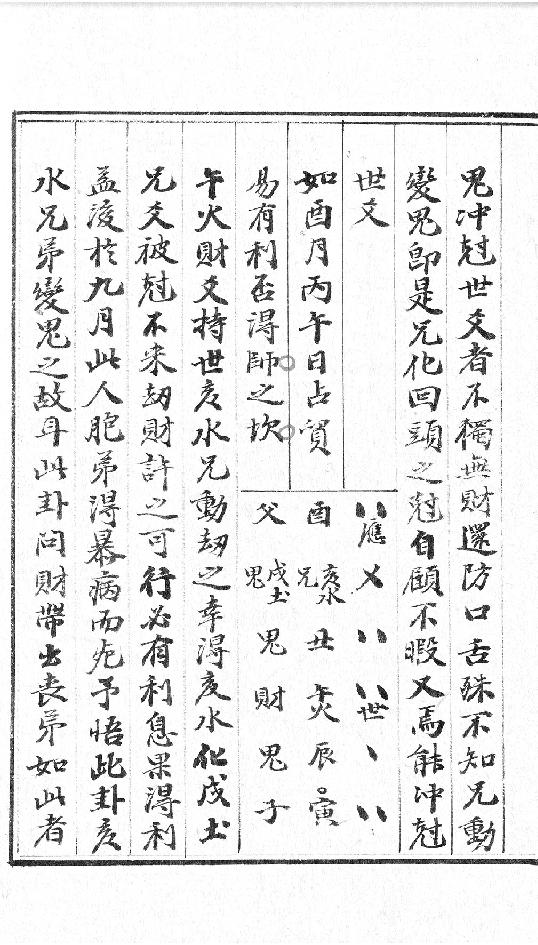 鬼冲尅世爻者不獨無財還防口舌殊不知兄動
變鬼卽是兄化回頭之尅自顧不暇又焉能冲尅
世爻
如酉月丙午日占貿
易有利否得師之坎
〃應 乂 〃 〃世 丶 〃
酉 亥水兄 丑 午火 辰 寅
父 戌土鬼 鬼 財 鬼 子
午火財爻持世亥水兄動劫之幸得亥水化戌土
兄爻被尅不來劫財許之可行必有利息果得利
益後於九月此人胞弟得暴病而死予悟此卦亥
水兄弟變鬼之故耳此卦问財帶出丧弟如此者